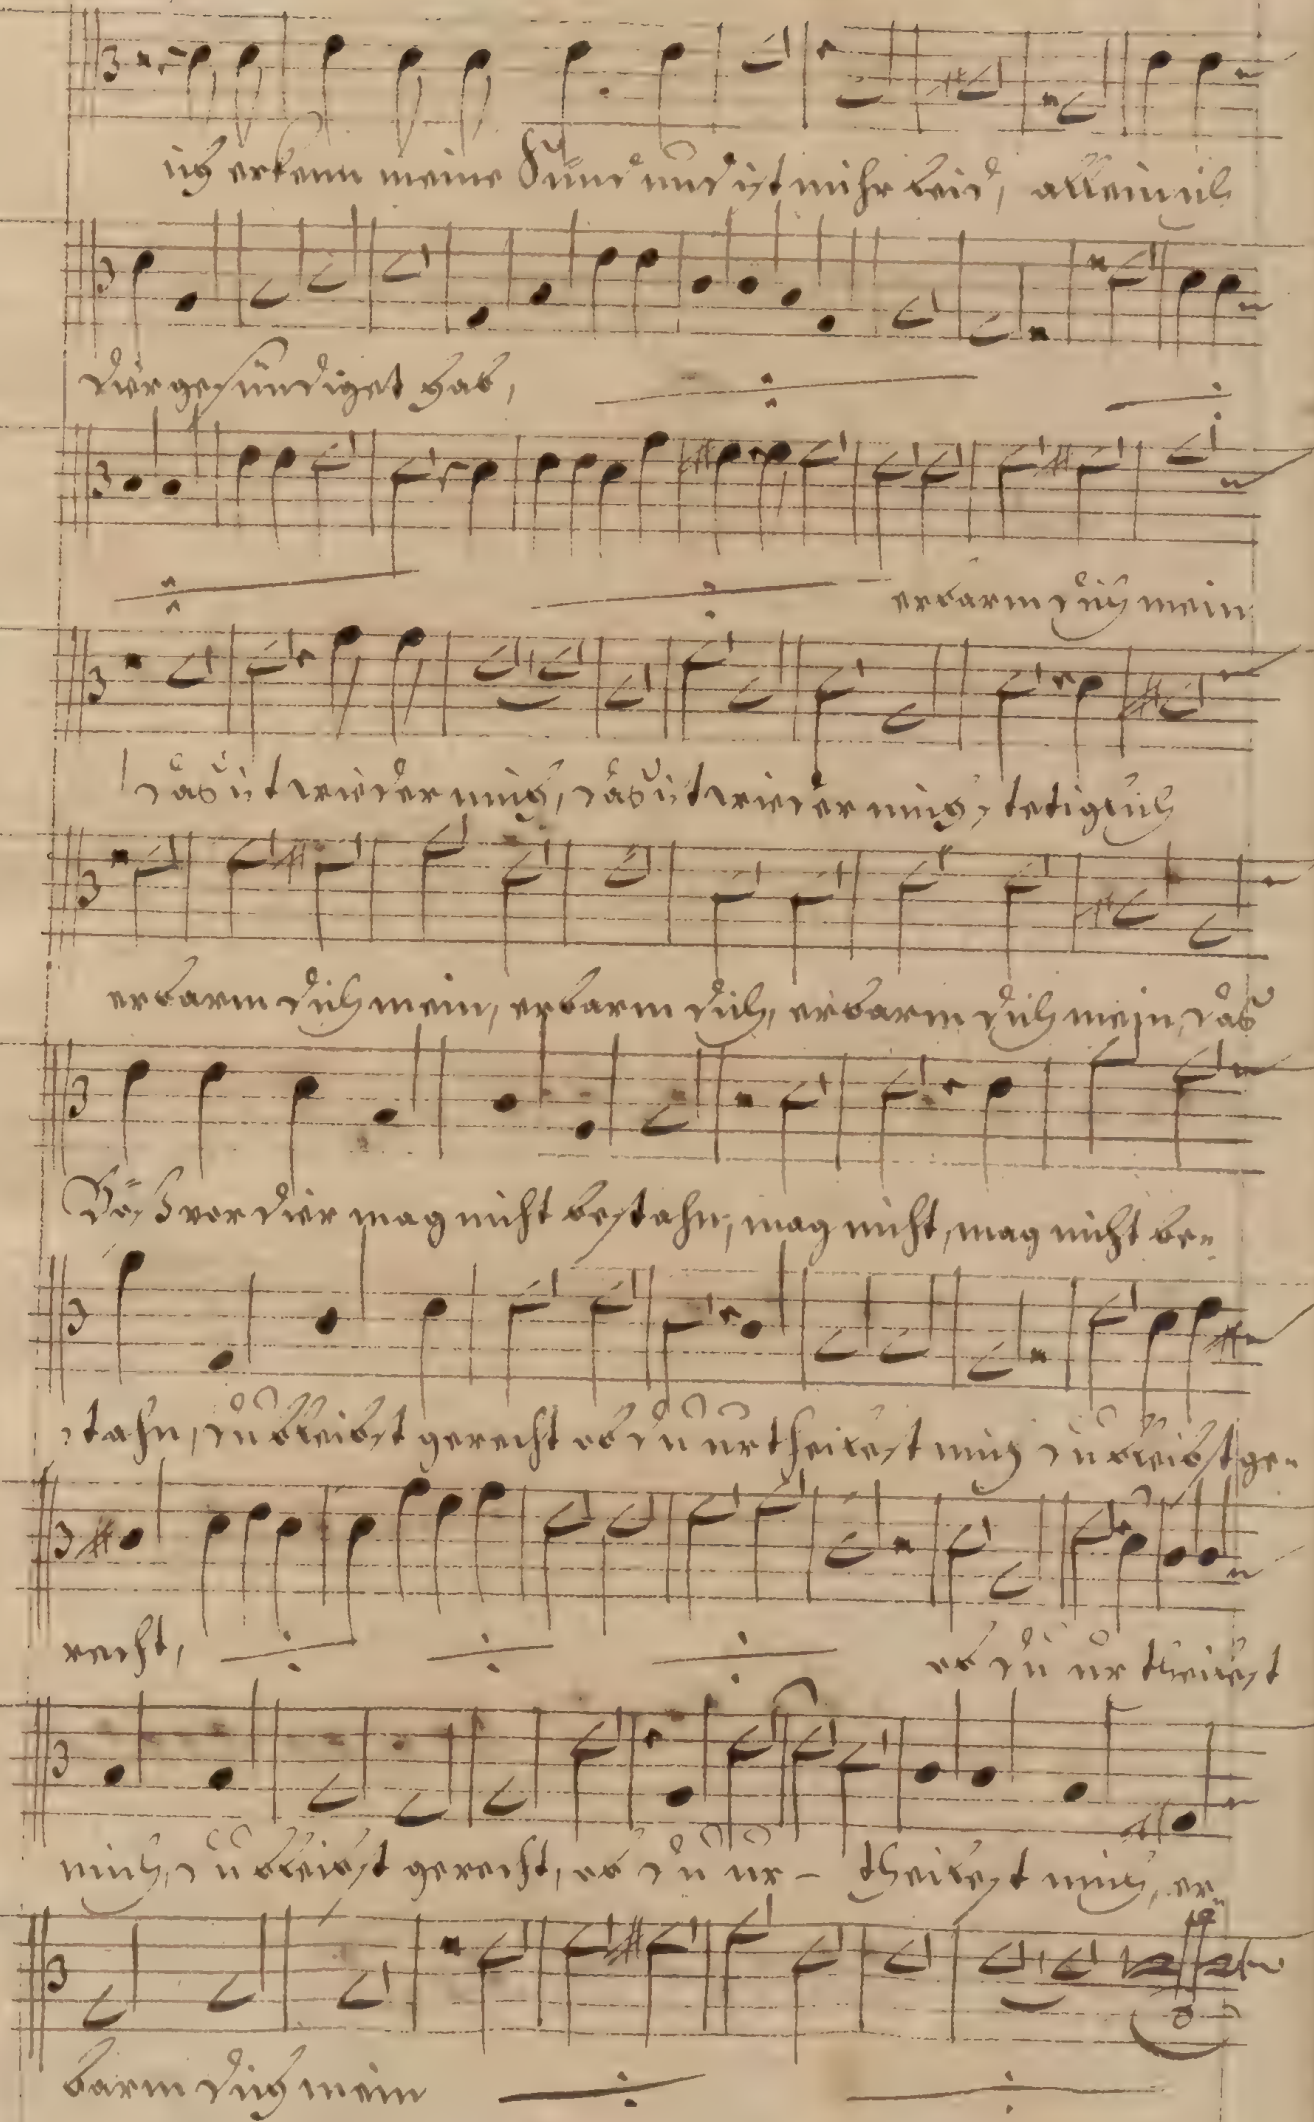 ich erkenn meine Sünd und ist mihr leid, allein ich
dier gesündiget hab,
erbarm dich mein
das ist wieder mich, das ist wieder mich, tetig ich
erbarm dich mein, erbarm dich, erbarm dich mein, das
Böß vor dier mag nicht bestahn, mag nicht, mag nicht be-
stahn, du bleibst gerecht ob du urtheilest mich du bleibst ge-
recht, ob du urtheilest
mich, du bleibst gerecht, ob du ur- theilest mich, er-
barm dich mein